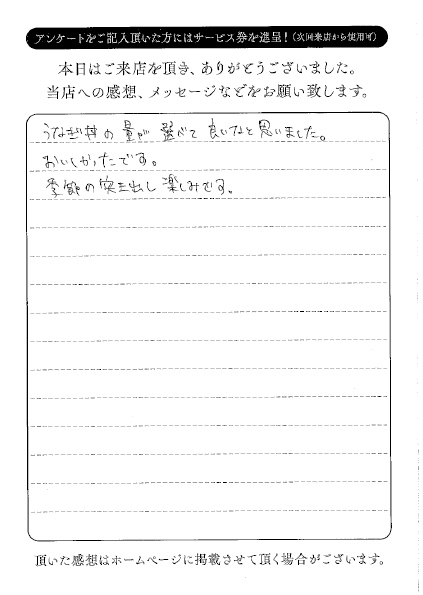 アンケートをご記入頂いた方にはサービス券を進呈！（次回来店から使用可）
本日はご来店を頂き、ありがとうございました。
当店への感想、メッセージなどをお願い致します。
うなぎ丼の量が選べて良いなと思いました。
おいしかったです。
季節の突き出し楽しみです。
頂いた感想はホームページに掲載させて頂く場合がございます。